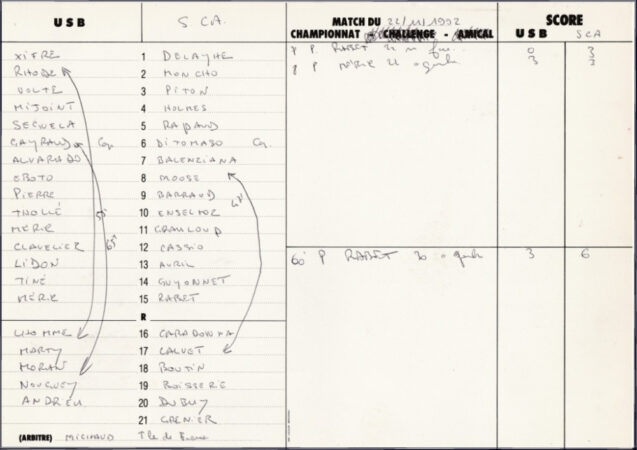 USB S CA. MATCH DU 22/11/1992 SCORE
CHAMPIONNAT CHALLENGE - AMICAL USB SCA
XIFRE 1 DELAYHE
RHODE 2 MONCHO
VOLTE 3 PITON
MIJOINT 4 HOLMES
SECWELA 5 RAPAUD
GAYRAUD Cap 6 DITOMASO Ca.
ALVARADO 7 BALENZIANA
EBOTO 8 MOOSE
PIERRE 9 BARRAUD
TNOLLÉ 10 ENSELTOR
MERIE 11 GRANLOUP
CLAVELIER 12 CASSIO
LIDON 13 AVRIL
TINÉ 14 GUYONNET
MÉRIE 15 RABET
R
LHOMME 16 CARADONNA
MARTY 17 CALVET
MORAN 18 BOUTIN
NOUGUEY 19 BOISSERE
ANDREU 20 DUBUY
21 GRENIER
(ARBITRE) MICHAUD Ile de France
P RABET 22 m 0 3
8 P MÉRIE 22 à gauche 3 3
60 P RABET 30 à gauche 3 6